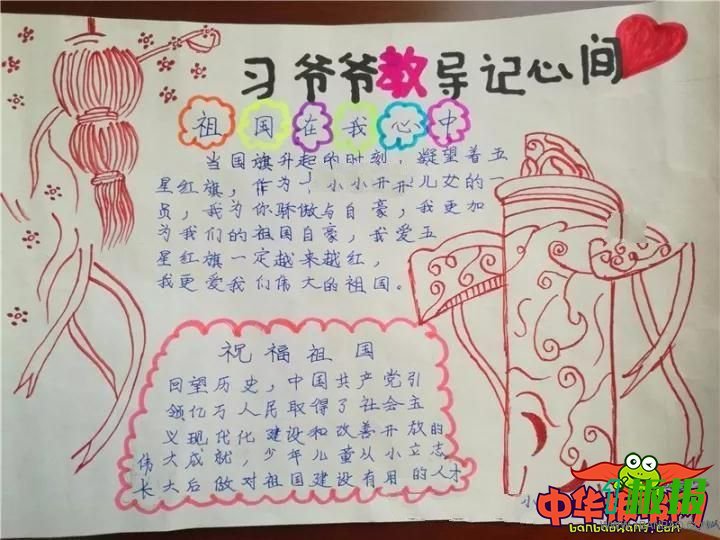 习爷爷教导记心间
祖国在我心中
当国旗升起的时刻，凝望着五
星红旗，作为一小小开开儿女的一
员，我为你骄傲与自豪，我更加
为我们的祖国自豪，我爱五
星红旗一定越来越红，
我更爱我们伟大的祖国。
祝福祖国
回望历史，中国共产党引
领亿万人民取得了社会主
义现代化建设和改善开放的
伟大成就，少年儿童从小立志
长大后做对祖国建设有用的人才
小
中华
报网
banbaowang.com